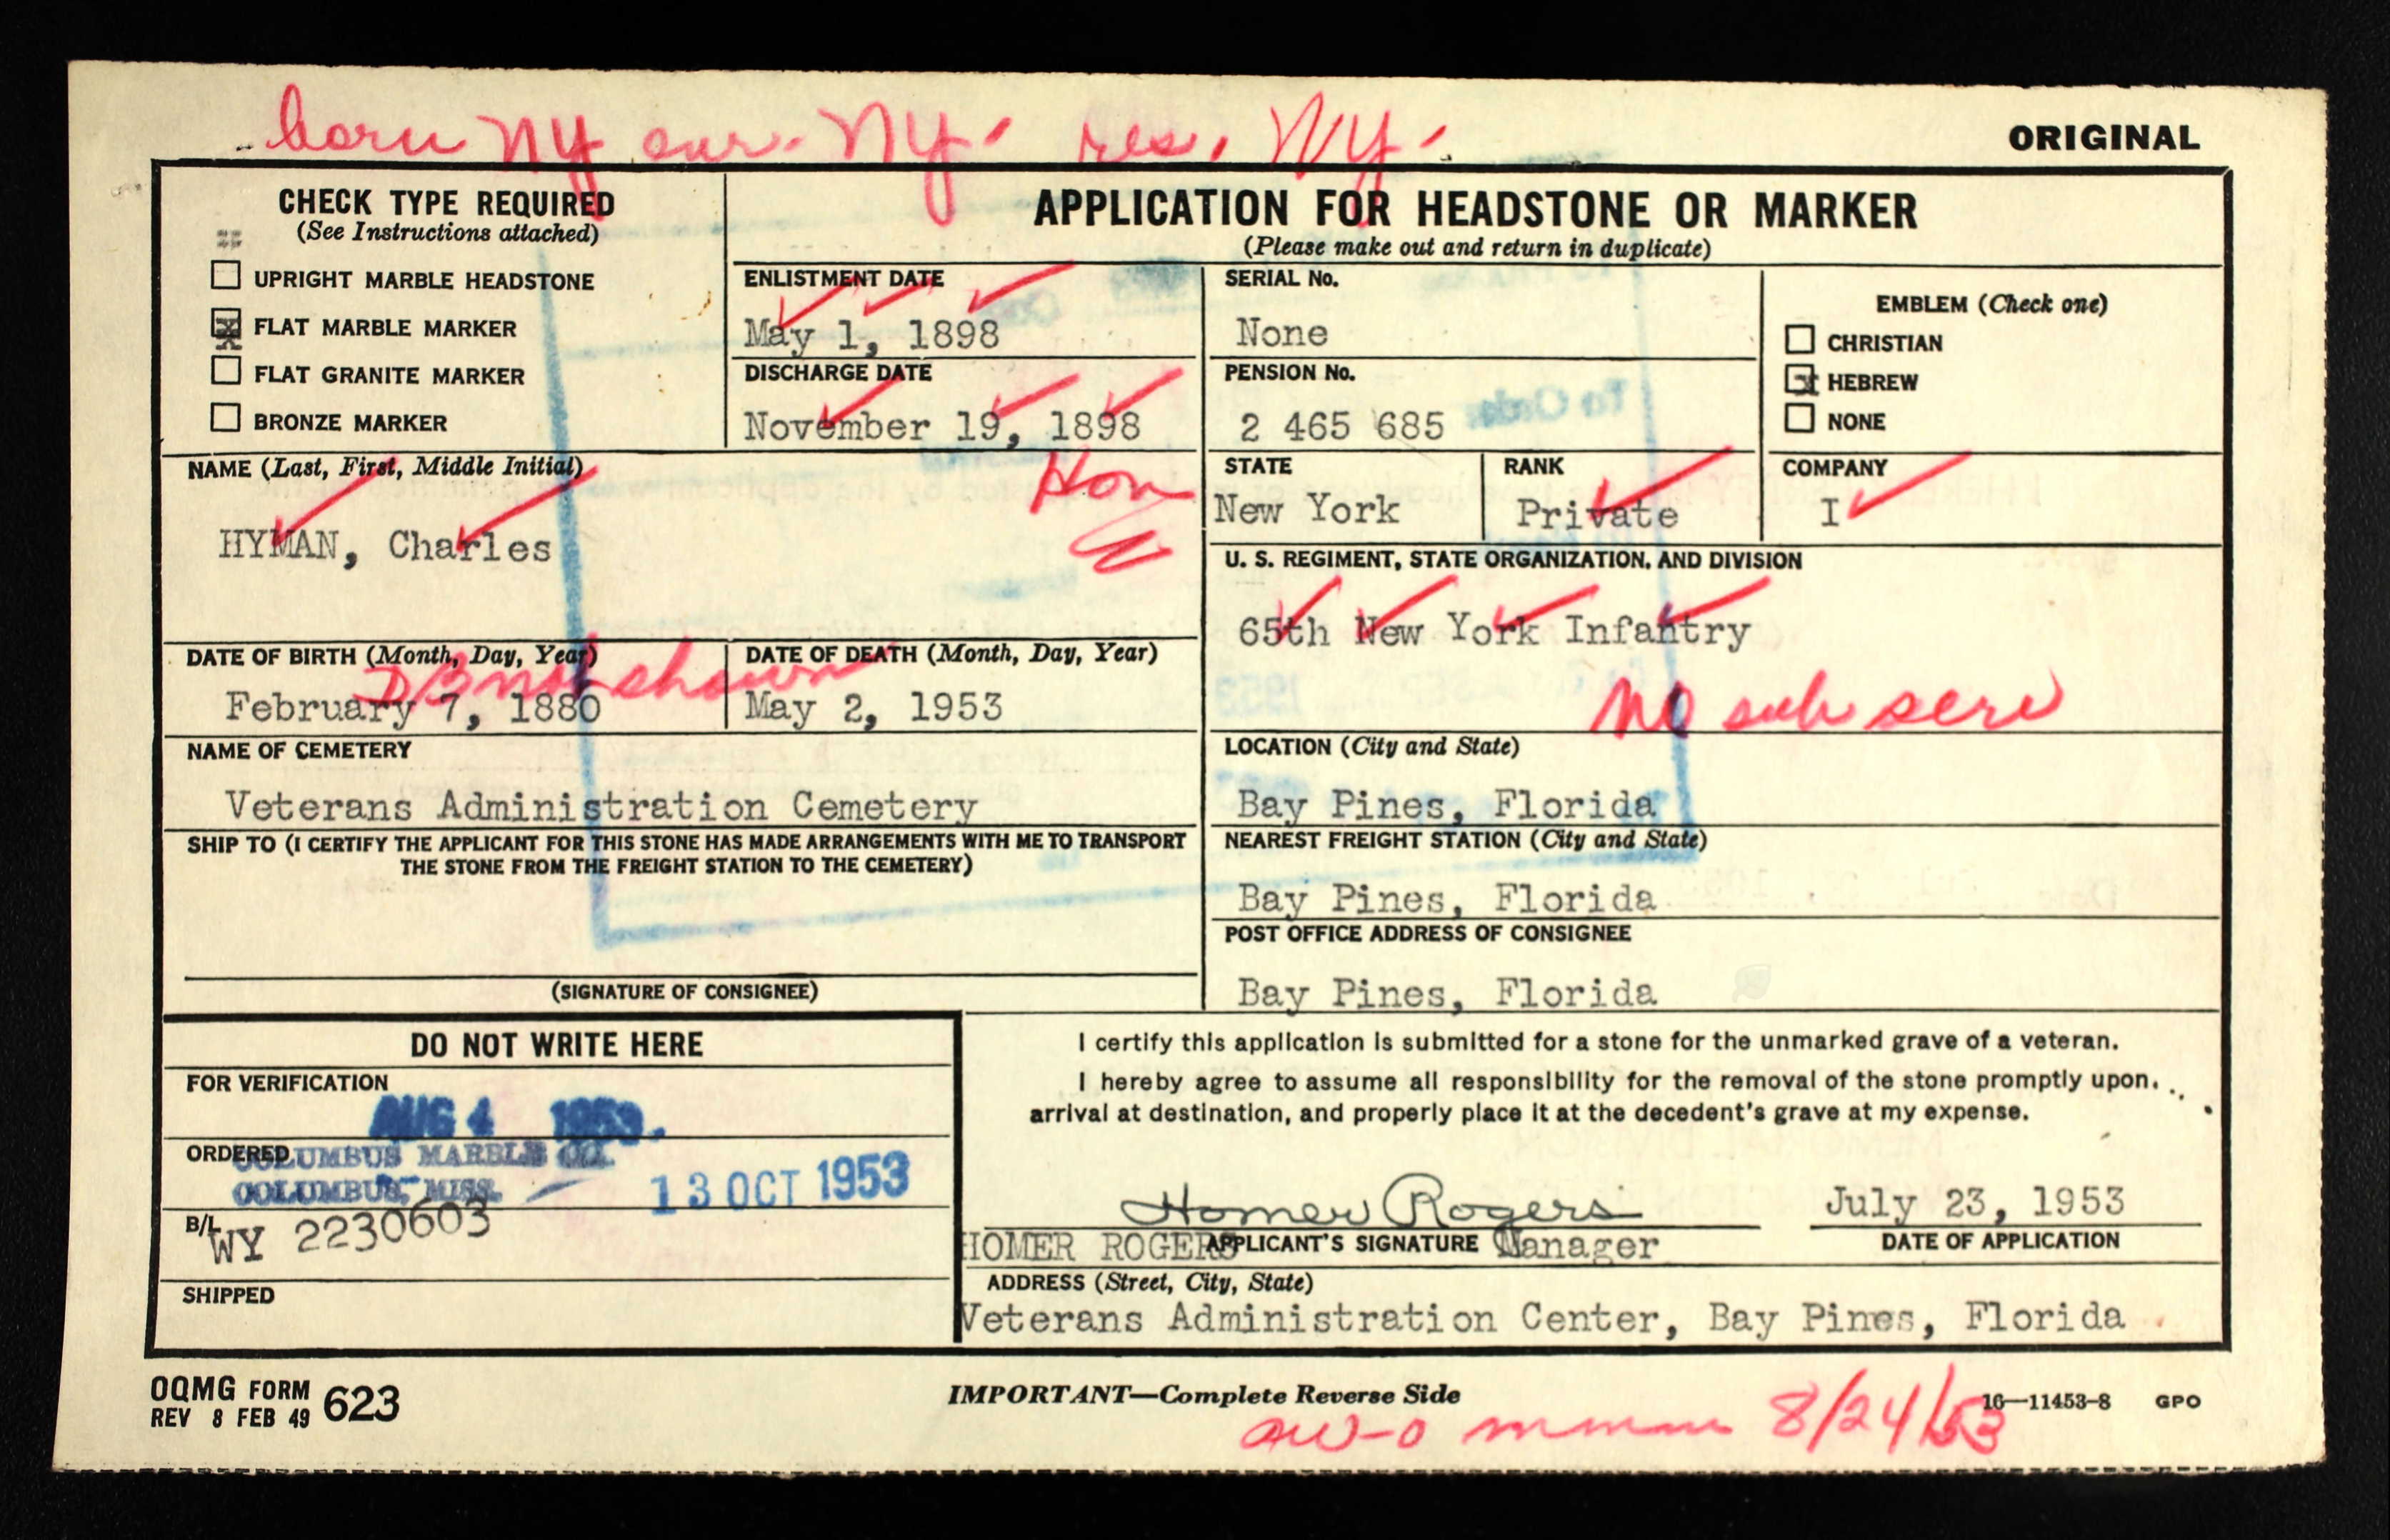 born NY enr. NY. res. NY.
ORIGINAL
CHECK TYPE REQUIRED
(See Instructions attached)
UPRIGHT MARBLE HEADSTONE
x FLAT MARBLE MARKER
FLAT GRANITE MARKER
BRONZE MARKER
APPLICATION FOR HEADSTONE OR MARKER
(Please make out and return in duplicate)
ENLISTMENT DATE
May 1, 1898
DISCHARGE DATE
November 19, 1898
SERIAL No.
None
PENSION No.
2 465 685
EMBLEM (Check one)
CHRISTIAN
x HEBREW
NONE
NAME (Last, First, Middle Initial)
HYMAN, Charles
Hon
STATE
New York
RANK
Private
COMPANY
I
U. S. REGIMENT, STATE ORGANIZATION, AND DIVISION
65th New York Infantry
No sub serv
DATE OF BIRTH (Month, Day, Year)
DB not shown
February 7, 1880
DATE OF DEATH (Month, Day, Year)
May 2, 1953
NAME OF CEMETERY
Veterans Administration Cemetery
LOCATION (City and State)
Bay Pines, Florida
SHIP TO (I CERTIFY THE APPLICANT FOR THIS STONE HAS MADE ARRANGEMENTS WITH ME TO TRANSPORT
THE STONE FROM THE FREIGHT STATION TO THE CEMETERY)
NEAREST FREIGHT STATION (City and State)
Bay Pines, Florida
POST OFFICE ADDRESS OF CONSIGNEE
Bay Pines, Florida
(SIGNATURE OF CONSIGNEE)
DO NOT WRITE HERE
FOR VERIFICATION
AUG 4 1953
ORDERED
COLUMBUS MARBLE CO.
COLUMBUS, MISS.
13 OCT 1953
B/L
WY 2230603
SHIPPED
I certify this application is submitted for a stone for the unmarked grave of a veteran.
I hereby agree to assume all responsibility for the removal of the stone promptly upon
arrival at destination, and properly place it at the decedent's grave at my expense.
Homer Rogers
July 23, 1953
HOMER ROGERS APPLICANT'S SIGNATURE Manager
DATE OF APPLICATION
ADDRESS (Street, City, State)
Veterans Administration Center, Bay Pines, Florida
OQMG FORM 623
REV 8 FEB 49
IMPORTANT—Complete Reverse Side
16—11453-8 GPO
8/24/53